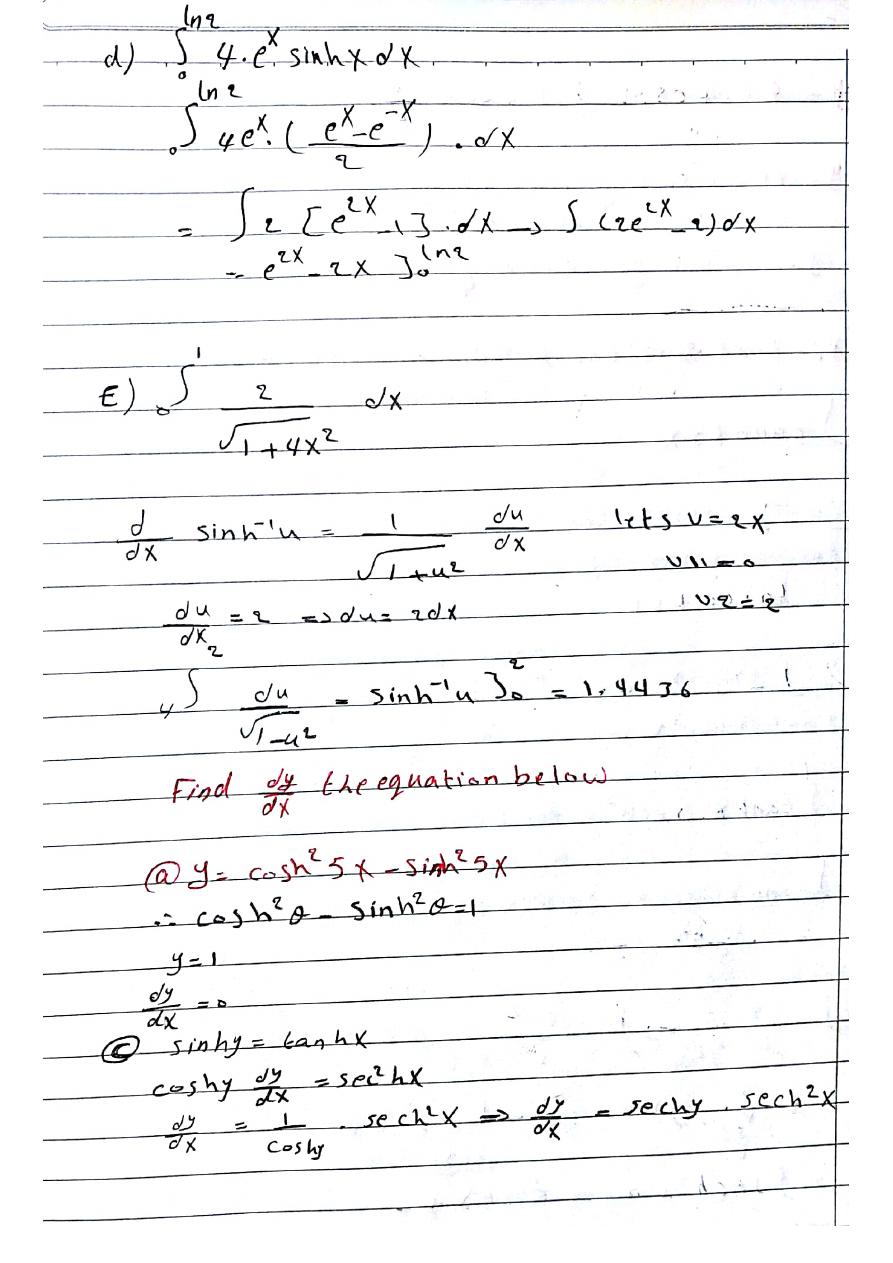 d) ∫₀^ln2 4·e^x. sinhx dx
₀∫^ln2 4e^x. ( (e^x - e^-x)/2 ) . dx
= ∫ 2 [e^2x - 1] . dx → ∫ (2e^2x - 2) dx
= e^2x - 2x ]₀^ln2
E) ₀∫^1 2/√(1+4x²) dx
d/dx sinh⁻¹u = 1/√(1+u²) du/dx lets u = 2x
u1 = 0
du/dx = 2 => du = 2dx u2 = 2
∫^2 du/√(1-u²) = sinh⁻¹u ]₀² = 1.4436
Find dy/dx the equation below
ⓐ y = cosh² 5x - sinh² 5x
∴ cosh²θ - sinh²θ = 1
y = 1
dy/dx = 0
ⓒ sinhy = tanhx
coshy dy/dx = sec²hx
dy/dx = 1/coshy . sech²x => dy/dx = sechy . sech²x